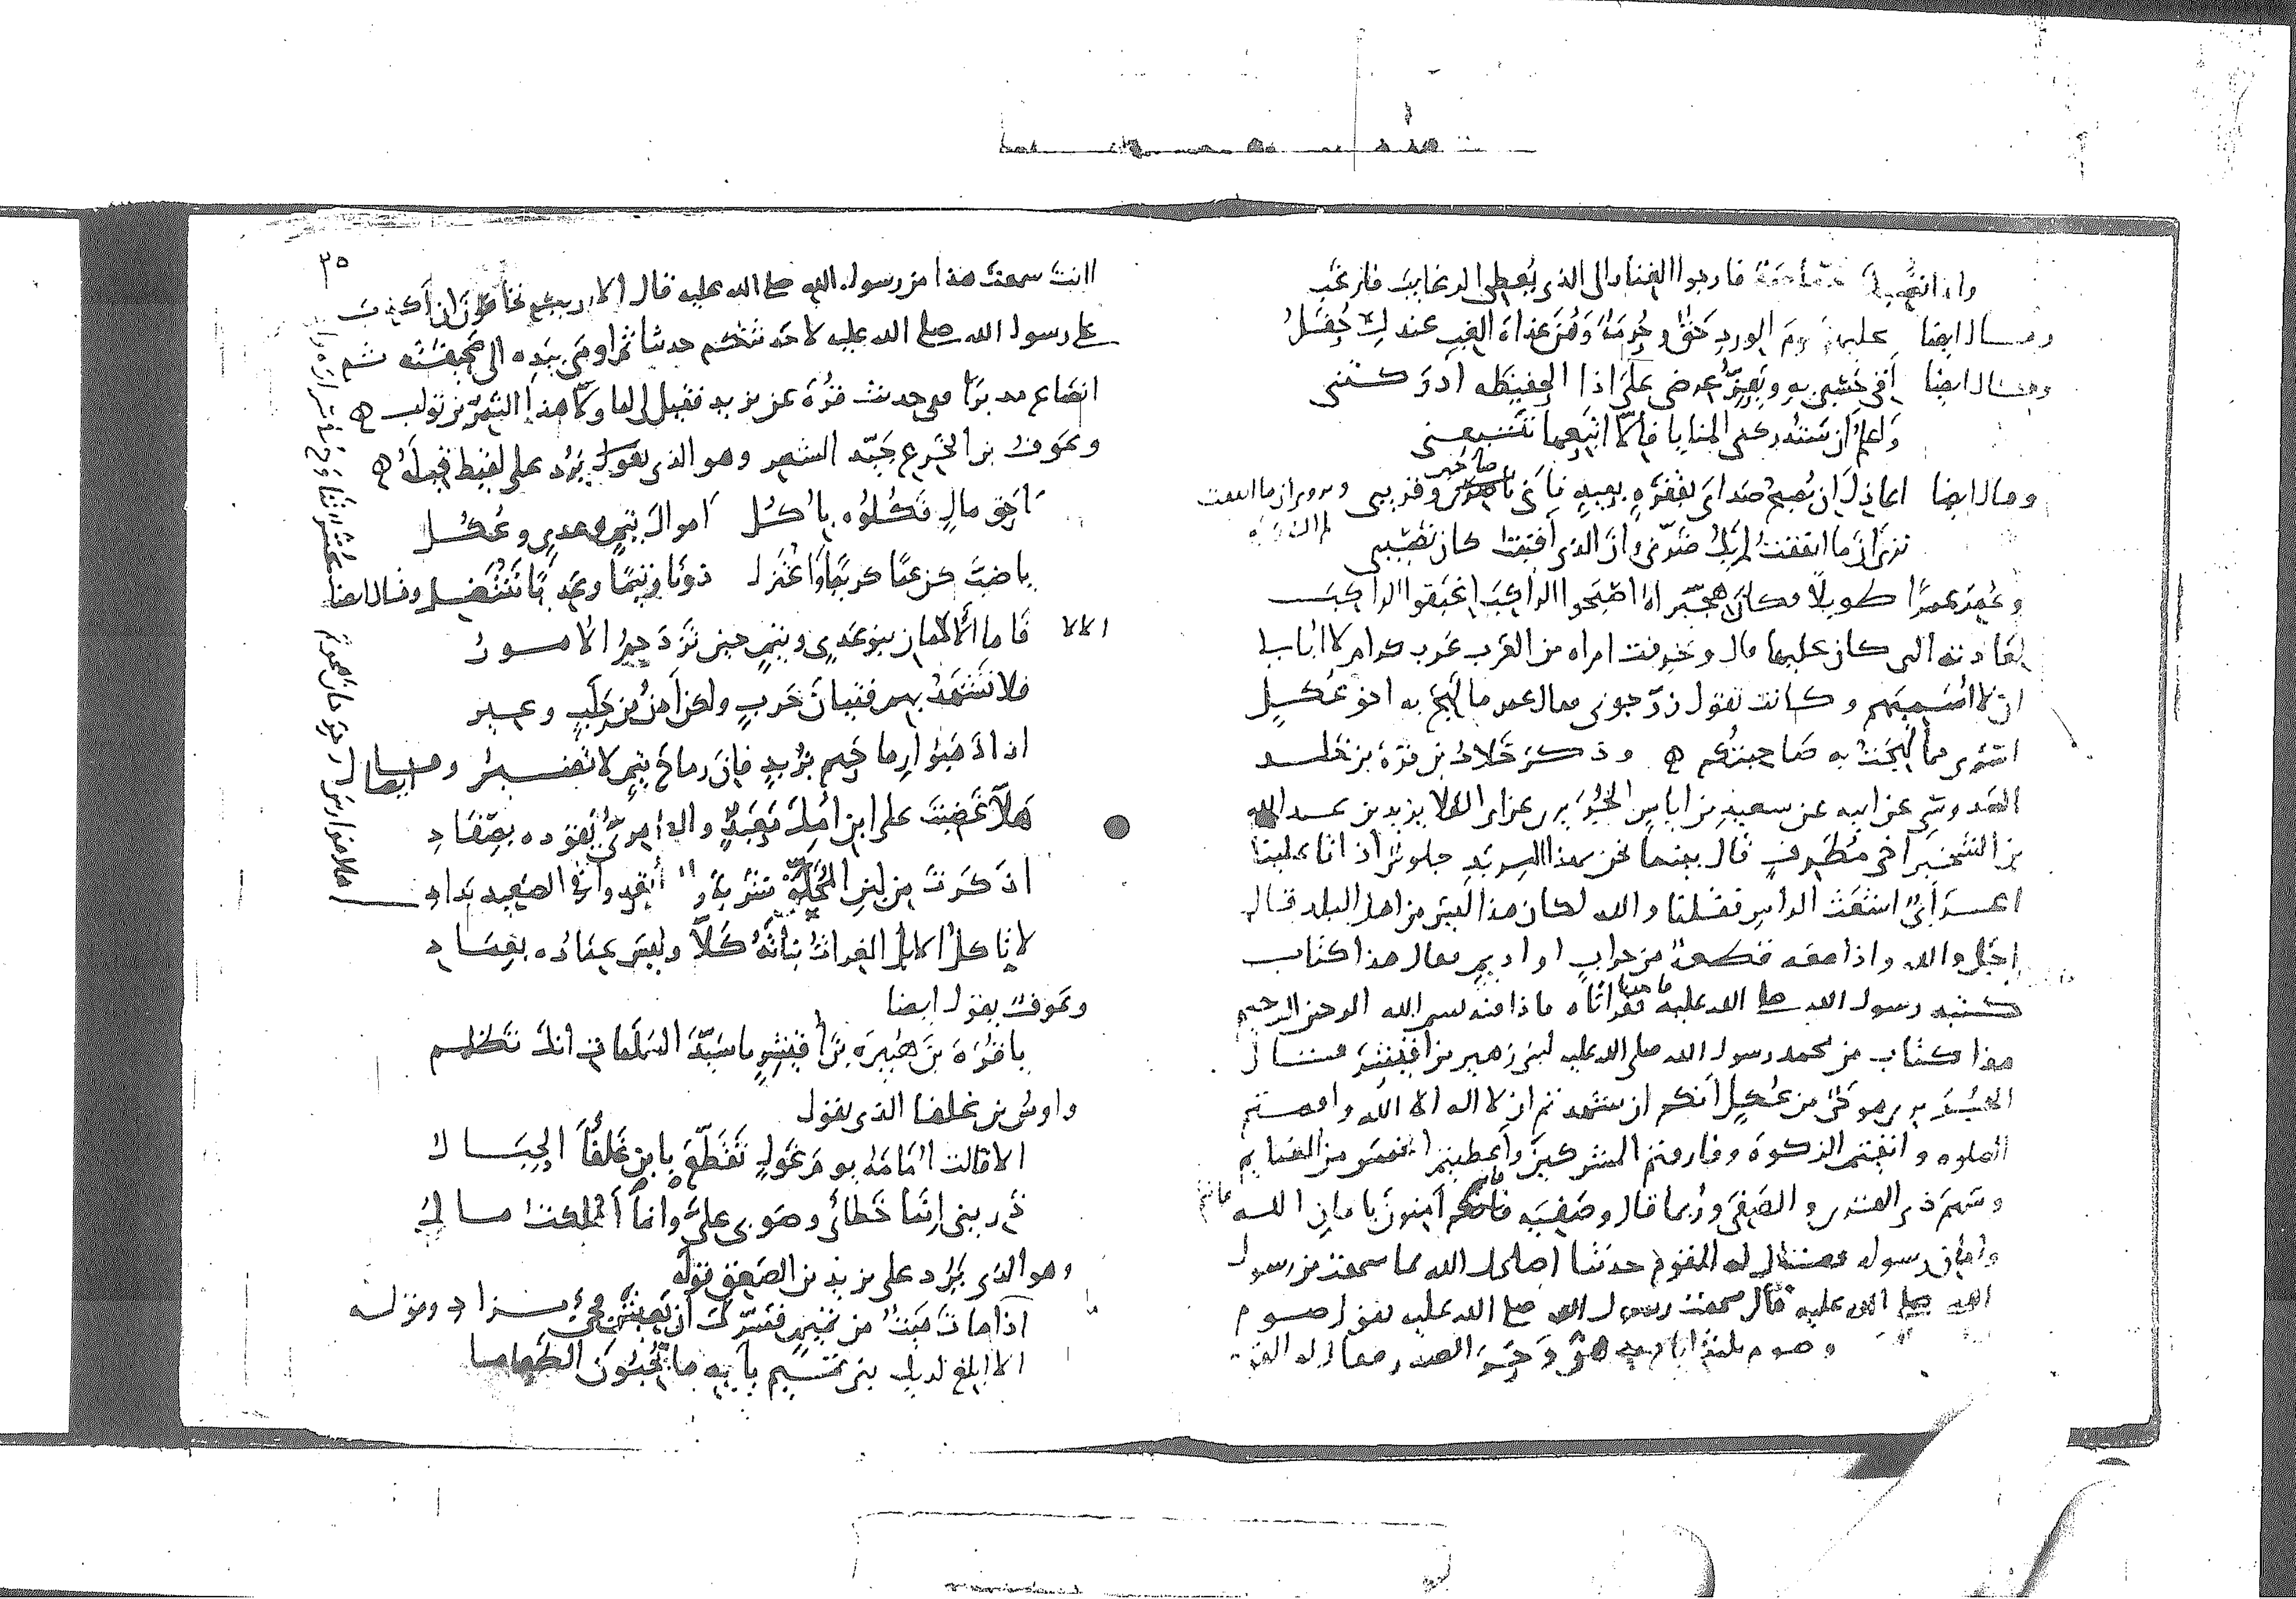 واذا تصبك خصاصة فارجوا الغنا والى الذى يعطى الرغايب فارغب
وقال ايضا عليهن يوم الورد حق وحرمة وهن غداة الغب عندك حفل
وقال ايضا اقى حسبى به ويعز عرضى على اذا الحفيظه ادركتنى
واعلم ان ستدركنى المنايا فالا اتبعها تتبعنى
وقال ايضا اعاذل ان يصبح صداى بقفرة بعيد نآنى ناصرى وقريبى
ترى ان ما ابقيت لم اك ربه وان الذى افنيت كان نصيبى
وعمر عمرا طويلا فكان هجيراه اصبحوا الراكب اغبقوا الراكب
لعادته التى كان عليها قال وخرفت امراه من العرب عرب كرام لا ابالى
ان لا اسميهم وكانت تقول زوجونى فقال عمر ما لهج به اخو عكل
اسرى مما لهجت به صاحبتكم وذكر خلاد بن قرة بن خلد
السدوسى عن ابيه عن سعيد بن اياس الجريرى عن ابى العلا يزيد بن عبد الله
بن الشخير اخى مطرف قال بينما نحن بهذا المربد جلوس اذ اتا علينا
اعرابى اشعث الراس فقلنا والله لكان هذا ليس من اهل البلد قال
اجل والله واذا معه قطعة من جراب او اديم فقال هذا كتاب
كتبه رسول الله صلى الله عليه فقراناه فاذا فيه بسم الله الرحمن الرحيم
هذا كتاب من محمد رسول الله صلى الله عليه لبنى زهير بن اقيش قال
الجريرى هو حى من عكل انكم ان شهدتم ان لا اله الا الله واقمتم
الصلوه واتيتم الزكوة وفارقتم المشركين واعطيتم الخمس من الغنايم
وسهم ذى القربى والصفى وربما قال وصفيه فانتم آمنون بامان الله
وامان رسوله فقال له القوم حدثنا اصلحك الله بما سمعت من رسول
الله صلى الله عليه قال سمعت رسول الله صلى الله عليه يقول صوم
وصوم ثلثة ايام يذهبن وحر الصدر فقال له القوم
اانت سمعت هذا من رسول الله صلى الله عليه قال الا اريكم تخافون ان اكذب
على رسول الله صلى الله عليه لا حدثتكم حديثا ثم اومى بيده الى صحيفته ثم
انصاع مدبرا ففى حديث قرة عن يزيد فقيل لى لما ولى هذا النمر بن تولب
وعوف بن الخرع جيد الشعر وهو الذى يقول يرد على لقيط قيله
احق مال فكلوه باكل اموال تيم وعدى وعكل
فاما الالامان بنو عدى وتيم حين تزدحم الامور
فلا تشهد بهم فتيان حرب ولكن ادن من حلب وعير
اذا دهنوا رماحهم بزبد فان رماح تيم لا تضير وقال ايضا
هلا غضبت على ابن امك معبد والعامرى يقوده بصفاد
اذكرت من لبن المحلق شربة والخيل تعدوا فى الصعيد بداد
لا تاكل الابل الغراث نباته كلا وليس عماده بعماد
وعوف يقول ايضا
يا قرة بن هبيرة بن قشير يا سيد السلمات انك تظلم
واوس بن غلفا الذى يقول
الا قالت امامة يوم غول تقطع بابن غلفا الحبال
ذرينى انما خطائى وصوبى على وانما اهلكت مالى
وهو الذى يرد على يزيد بن الصعق قوله
اذا ما مات ميت من تميم فسرك ان يعيش فجئ بزاد وقوله
الا ابلغ لديك بنى تميم بآية ما يحبون الطعاما